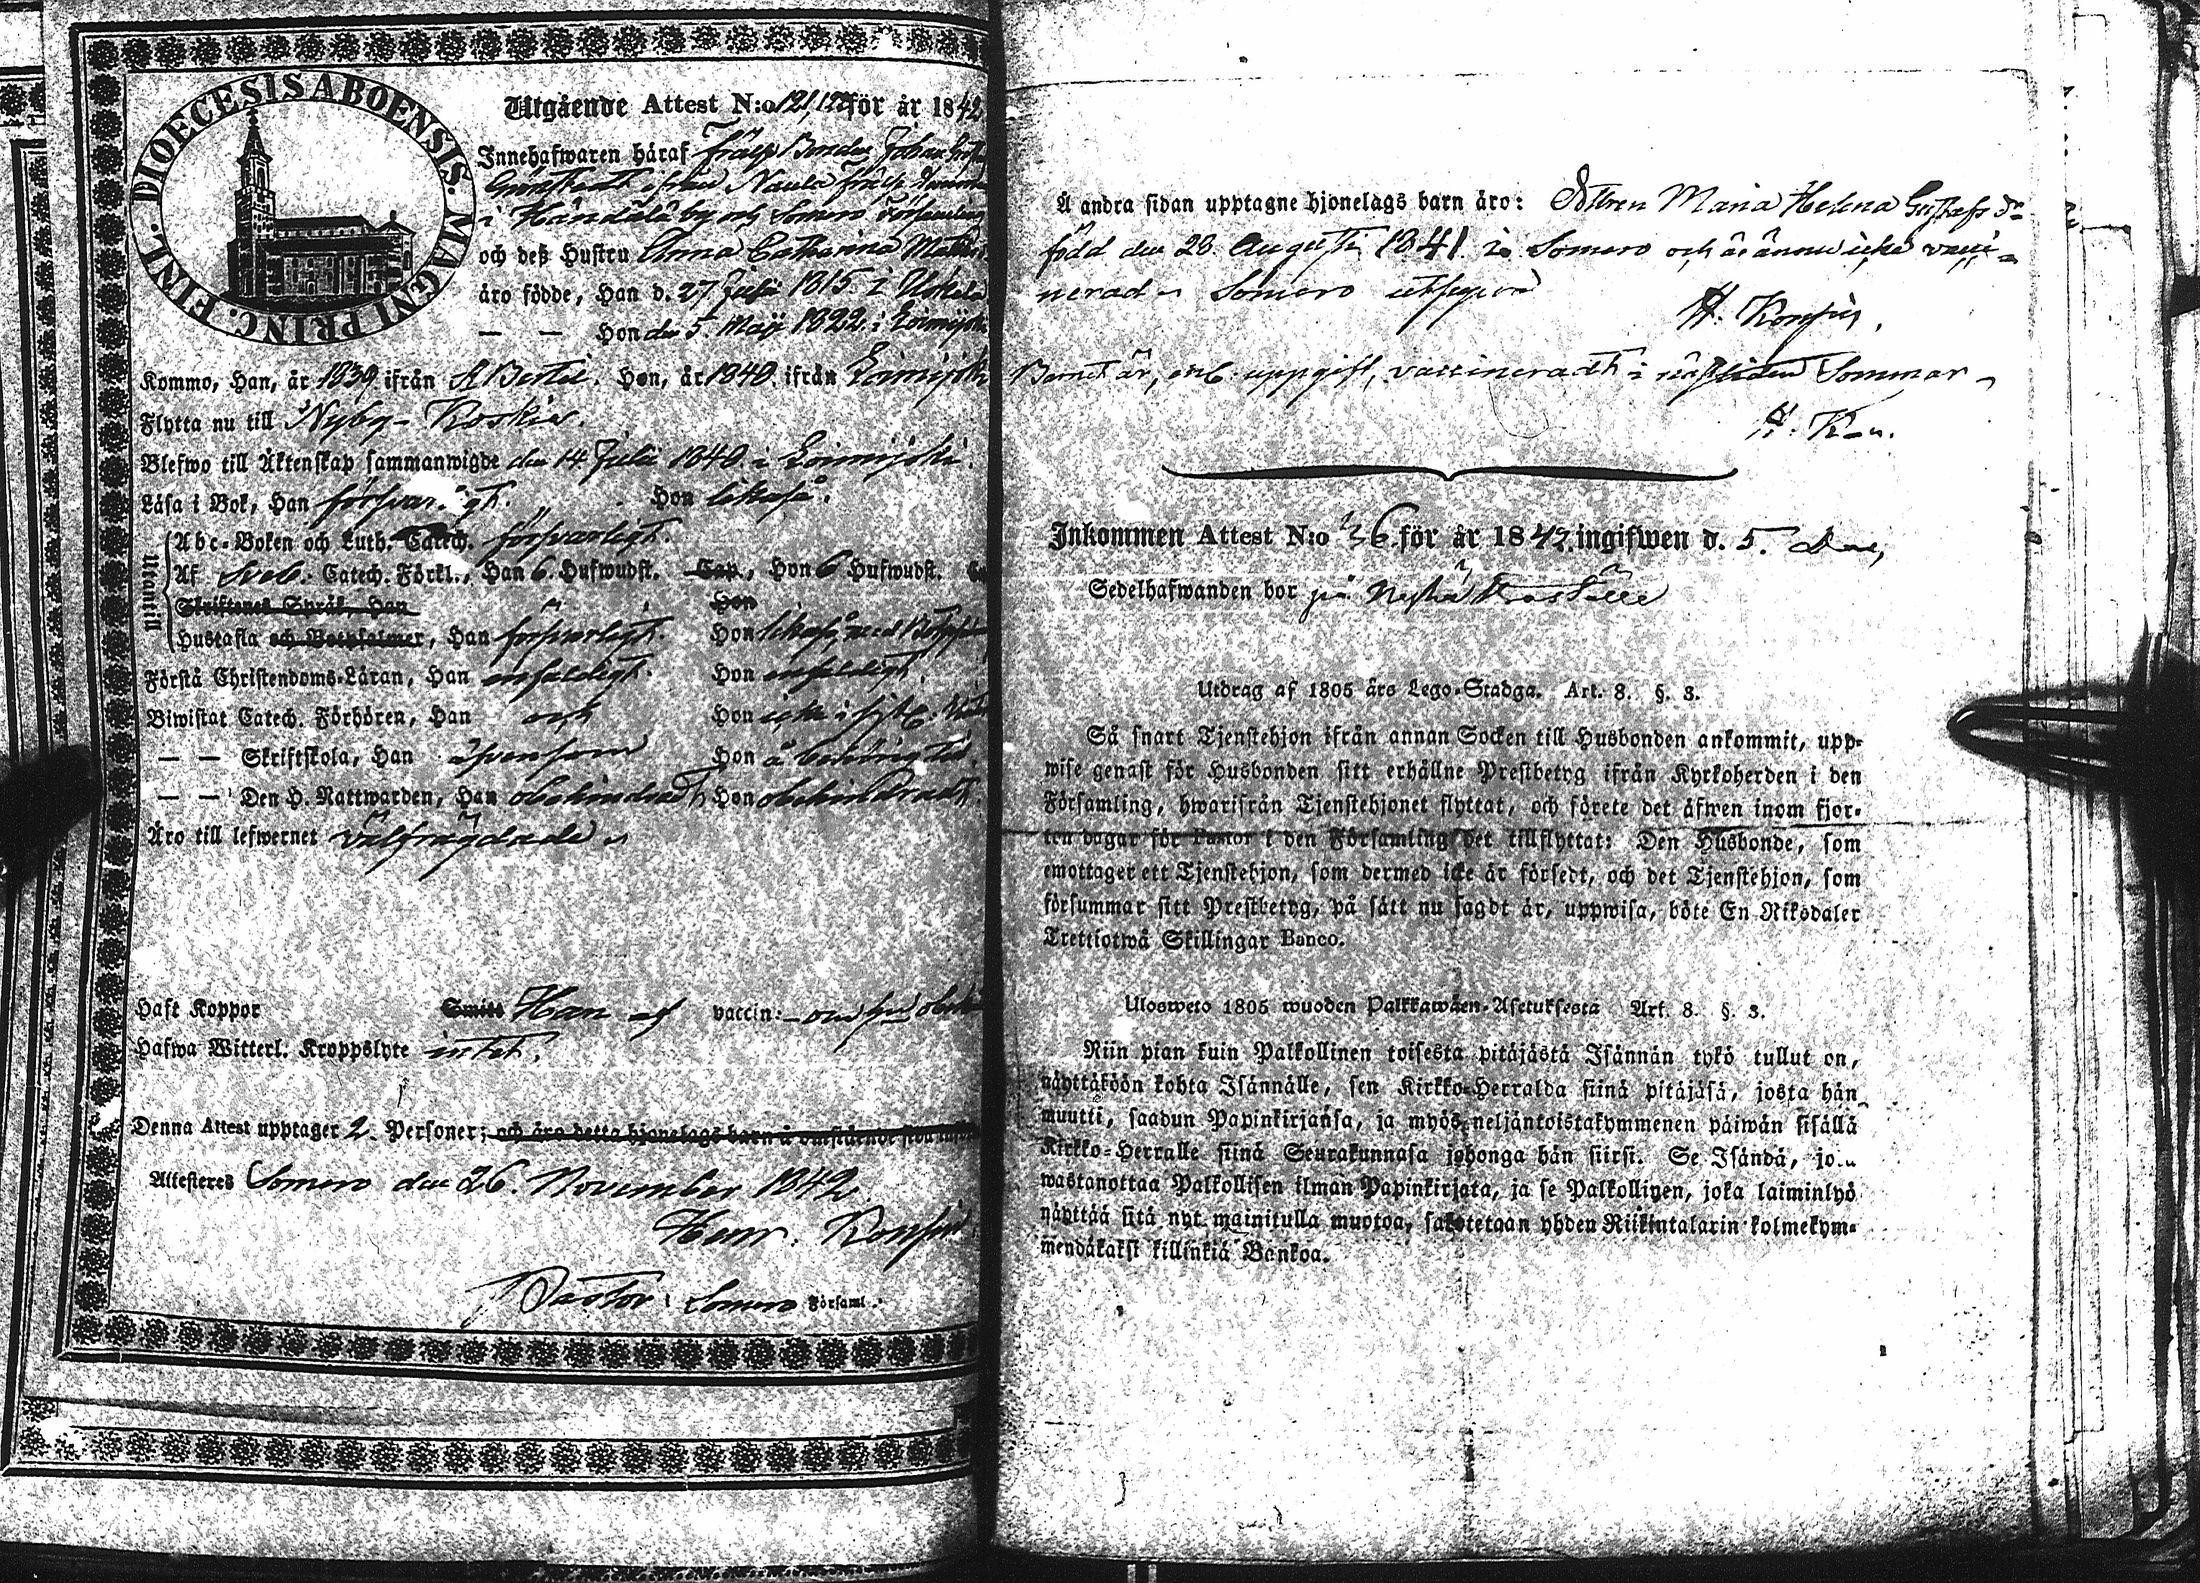 DIOECESIS ABOENSIS. MAGNI PRINC. FINL.
Utgående Attest N:o 121, 122 för år 1842
Innehafwaren häraf Bonden Johan
ifrån Naula
i Händälä by och Somero Församling
och deß Hustru Anna Catharina
äro födde, Han d. 27 Julii 1815 i Uskela
— — Hon den 5. Maji 1822 i Loimijoki
Kommo, Han, år 1839 ifrån St Bertils. Hon, år 1840. ifrån Loimijoki
Flytta nu till Nyby-Koskis.
Blefwo till Äktenskap sammanwigde den 14 Julii 1840 i Loimijoki.
Läsa i Bok, Han försvarligt. Hon likaså.
Utantill
Abc-Boken och Luth. Catech. försvarligt.
Af Sveb. Catech. Förkl., Han 6. Hufwudst. Cap., Hon 6 Hufwudst.
Skriftenes Språk, Han Hon
Hustafla och Botpsalmer, Han försvarligt. Hon likaså, med
Förstå Christendoms-Läran, Han enfaldigt. Hon enfaldigt.
Biwistat Catech. Förhören, Han och Hon
— — Skriftskola, Han äfvensom Hon å behörig tid.
— — Den H. Nattwarden, Han obehindradt, Hon obehindradt.
Äro till lefwernet välfrägdade
Haft Koppor Smitt Han af vaccin: — om
Hafwa Witterl. Kroppslyte intet.
Denna Attest upptager 2. Personer; och äro detta hjonelags barn å omstående sida
Attesteres Somero den 26. November 1842.
Henr. Konsin
Pastor i Somero Församl.
Å andra sidan upptagne hjonelags barn äro: Dottren Maria Helena Gustafsdr
född den 28. Augusti 1841. i Somero och är ännu icke vacci-
nerad. Somero
H. Konsin.
Barnet är, enl. uppgift, vaccineradt i Sommar
H. K-n.
Inkommen Attest N:o 36 för år 1842. ingifwen d. 5. Dec,
Sedelhafwanden bor på
Utdrag af 1805 års Lego-Stadga. Art. 8. §. 3.
Så snart Tjenstehjon ifrån annan Socken till Husbonden ankommit, upp-
wise genast för Husbonden sitt erhållne Prestbetyg ifrån Kyrkoherden i den
Församling, hwarifrån Tjenstehjonet flyttat, och förete det äfwen inom fjor-
ton dagar för Pastor i den Församling det tillflyttat: Den Husbonde, som
emottager ett Tjenstehjon, som dermed icke är försedt, och det Tjenstehjon, som
försummar sitt Prestbetyg, på sätt nu sagdt är, uppwisa, böte En Riksdaler
Trettiotwå Skillingar Banco.
Ulosweto 1805 wuoden Palkkawäen-Asetuksesta Art. 8. §. 3.
Niin pian kuin Palkollinen toisesta pitäjästä Isännän tykö tullut on,
näyttäköön kohta Isännälle, sen Kirkko-Herralda siinä pitäjäsä, josta hän
muutti, saadun Papinkirjansa, ja myös neljäntoistakymmenen päiwän sisällä
Kirkko-Herralle siinä Seurakunnasa johonga hän siirsi. Se Isändä, joka
wastanottaa Palkollisen ilman Papinkirjata, ja se Palkollinen, joka laiminlyö
näyttää sitä nyt mainitulla muotoa, sakotetaan yhden Riikintalarin kolmekym-
mendäkaksi killinkiä Bankoa.